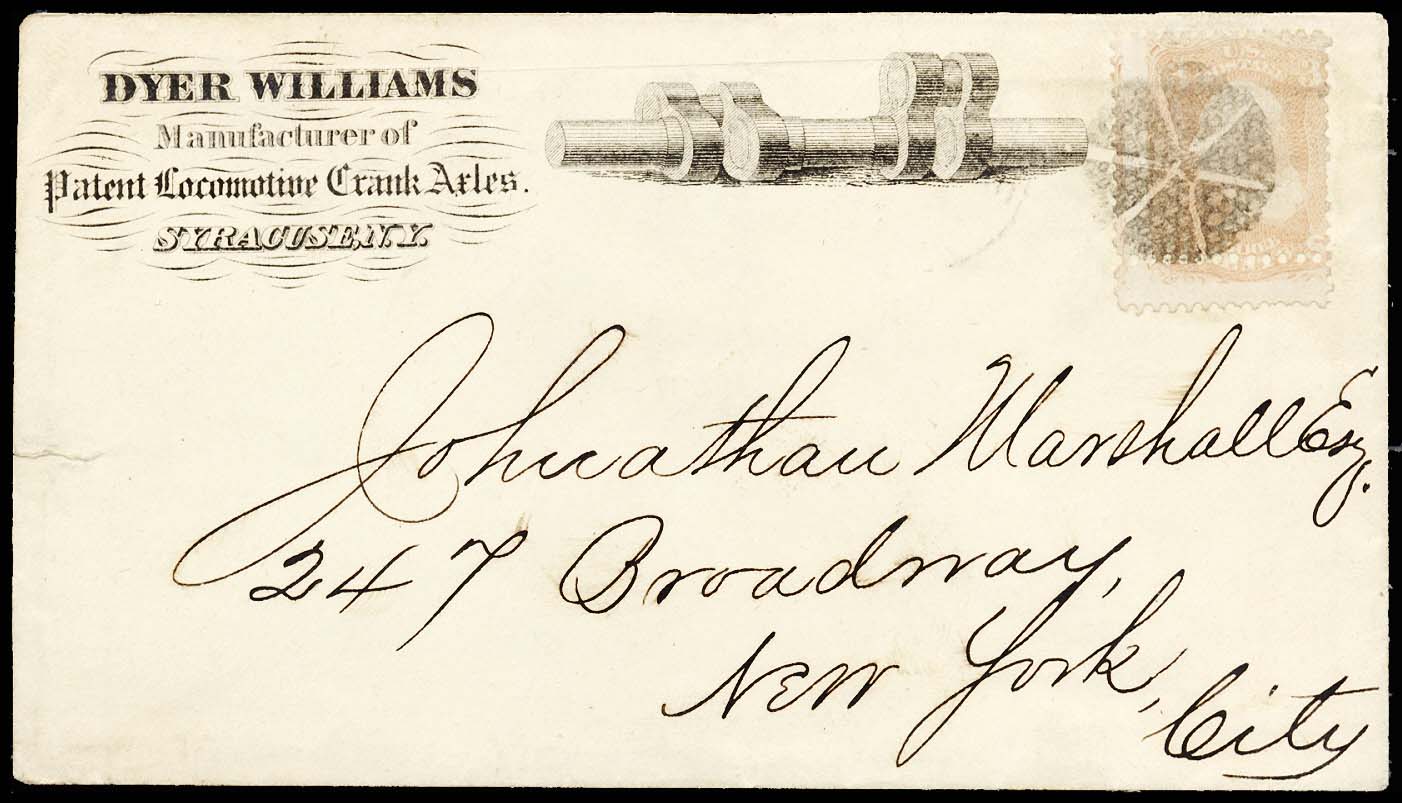 DYER WILLIAMS
Manufacturer of
Patent Locomotive Crank Axles.
SYRACUSE, N.Y.
Johnathan Marshall Esq.
247 Broadway,
New York,
City